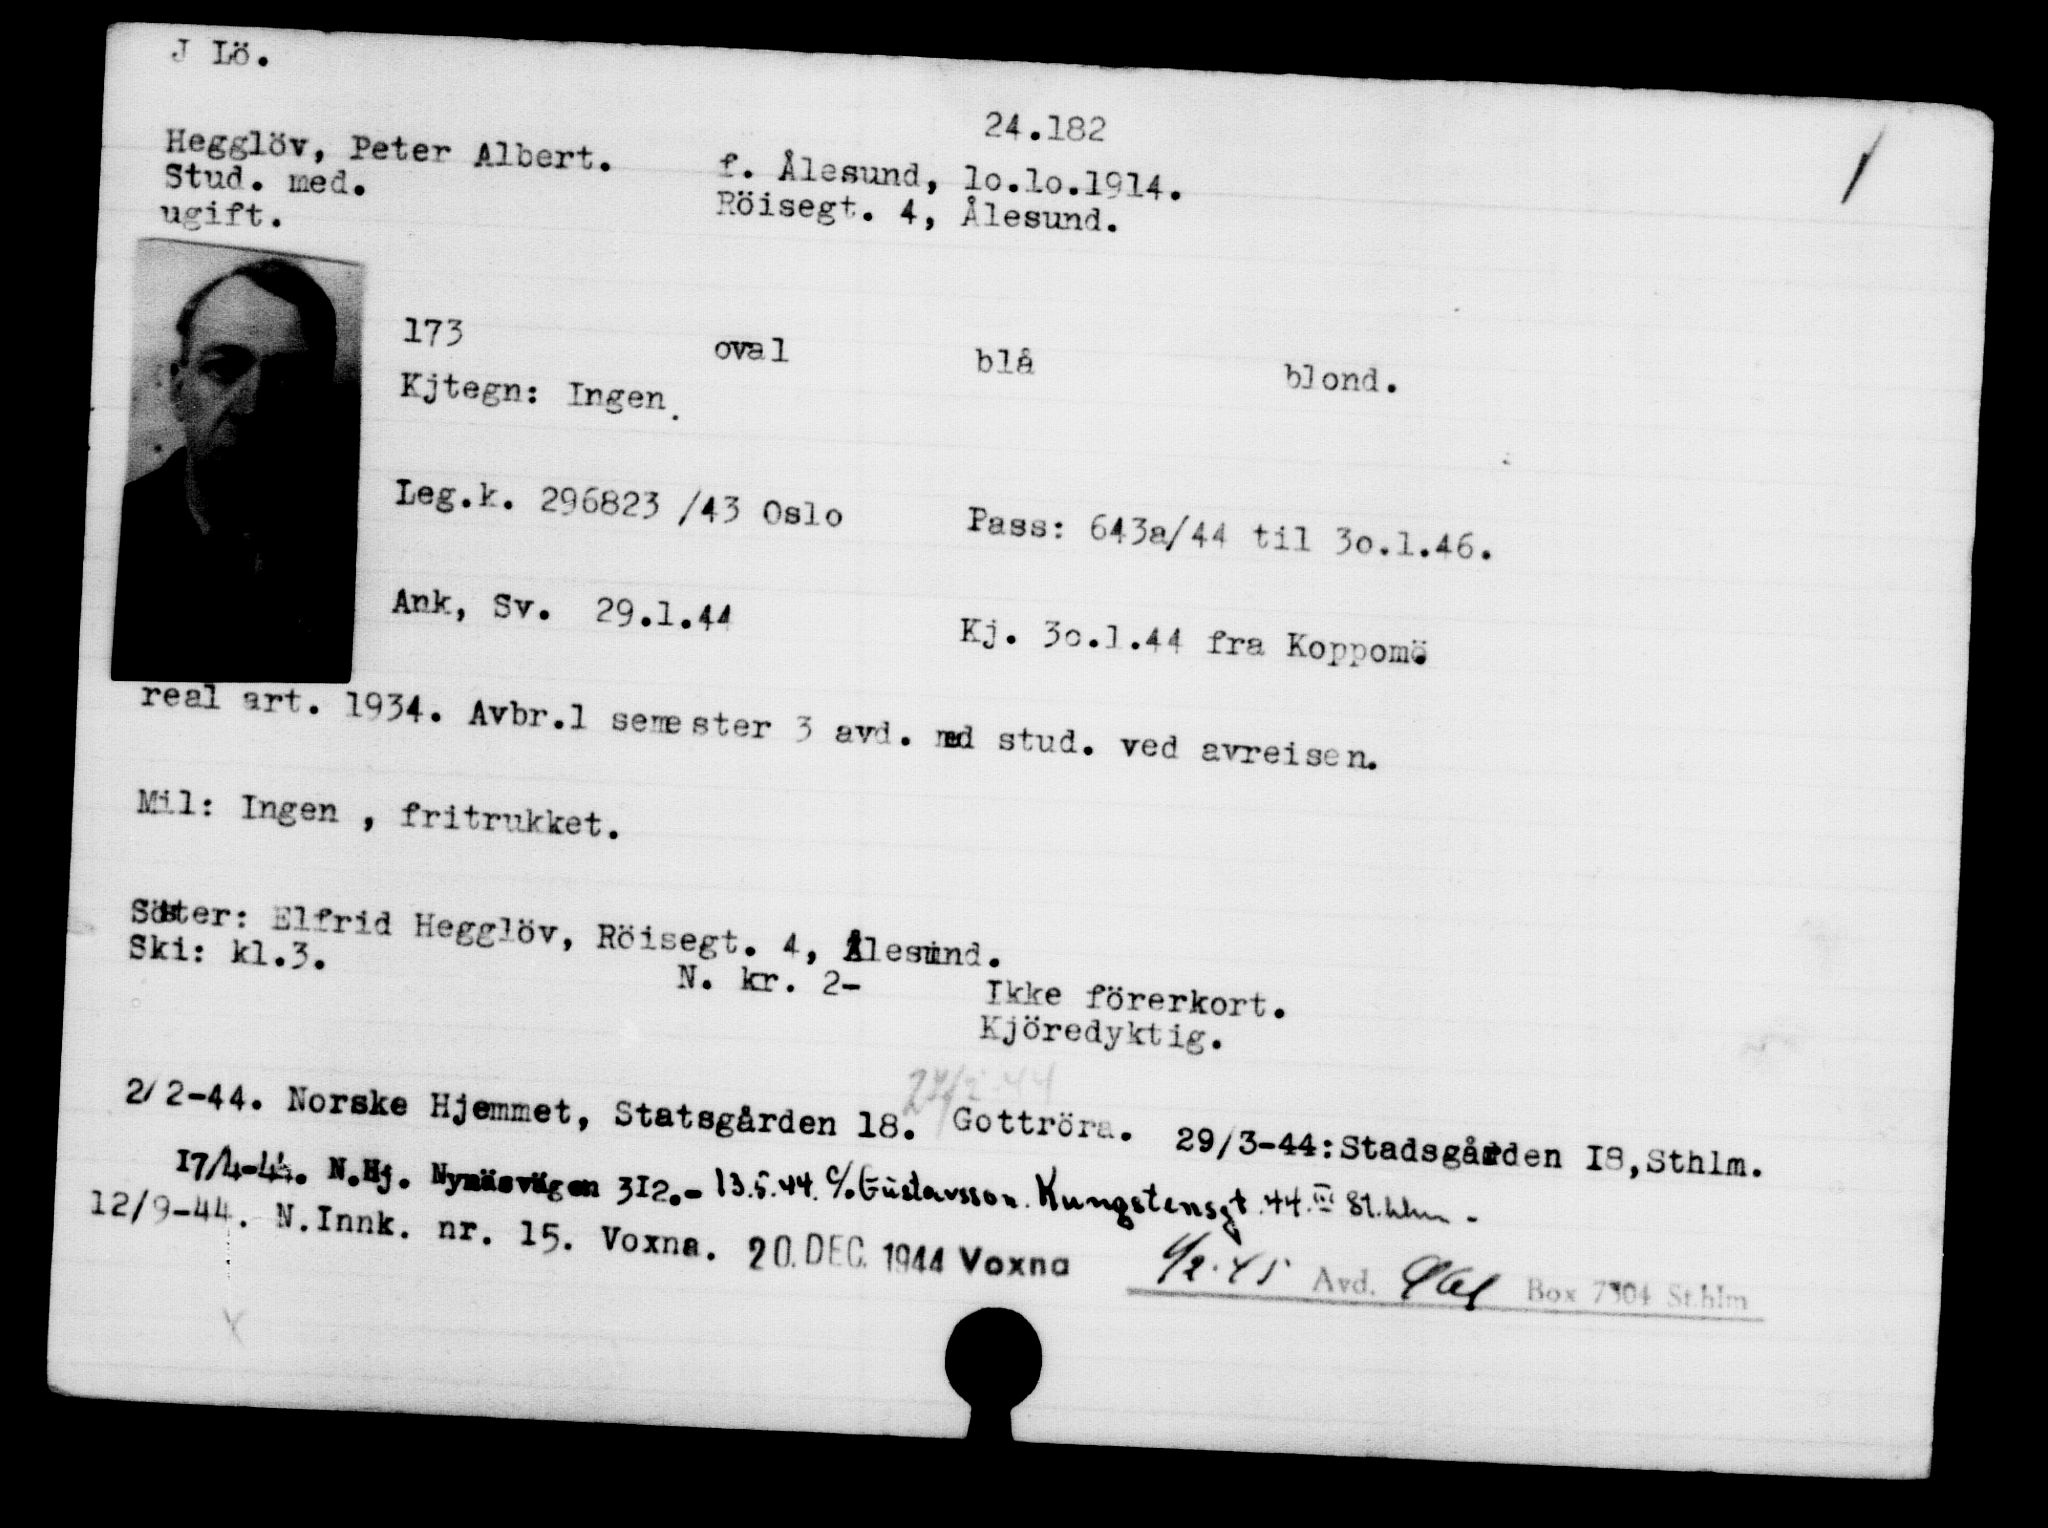 J Lö.
24.182
Hegglöv, Peter Albert. f. Ålesund, lo.lo.1914.
Stud. med. Röisegt. 4, Ålesund.
ugift.
173 oval blå blond.
Kjtegn: Ingen.
Leg.k. 296823 /43 Oslo Pass: 643a/44 til 3o.1.46.
Ank, Sv. 29.1.44 Kj. 3o.1.44 fra Koppomö
real art. 1934. Avbr.1 semester 3 avd. med stud. ved avreisen.
Mil: Ingen , fritrukket.
Söster: Elfrid Hegglöv, Röisegt. 4, Ålesund.
Ski: kl.3. N. kr. 2- Ikke förerkort.
Kjöredyktig.
2/2-44. Norske Hjemmet, Statsgården 18. Gottröra. 29/3-44:Stadsgården I8,Sthlm.
I7/4-44. N.Hj. Nynäsvägen 3I2.- 13.5.44. c/o. Gustavsson. Kungstensgt. 44. III St.hlm -
12/9-44. N.Innk. nr. 15. Voxna. 20. DEC. 1944 Voxna
Avd. Box 7304 St.hlm